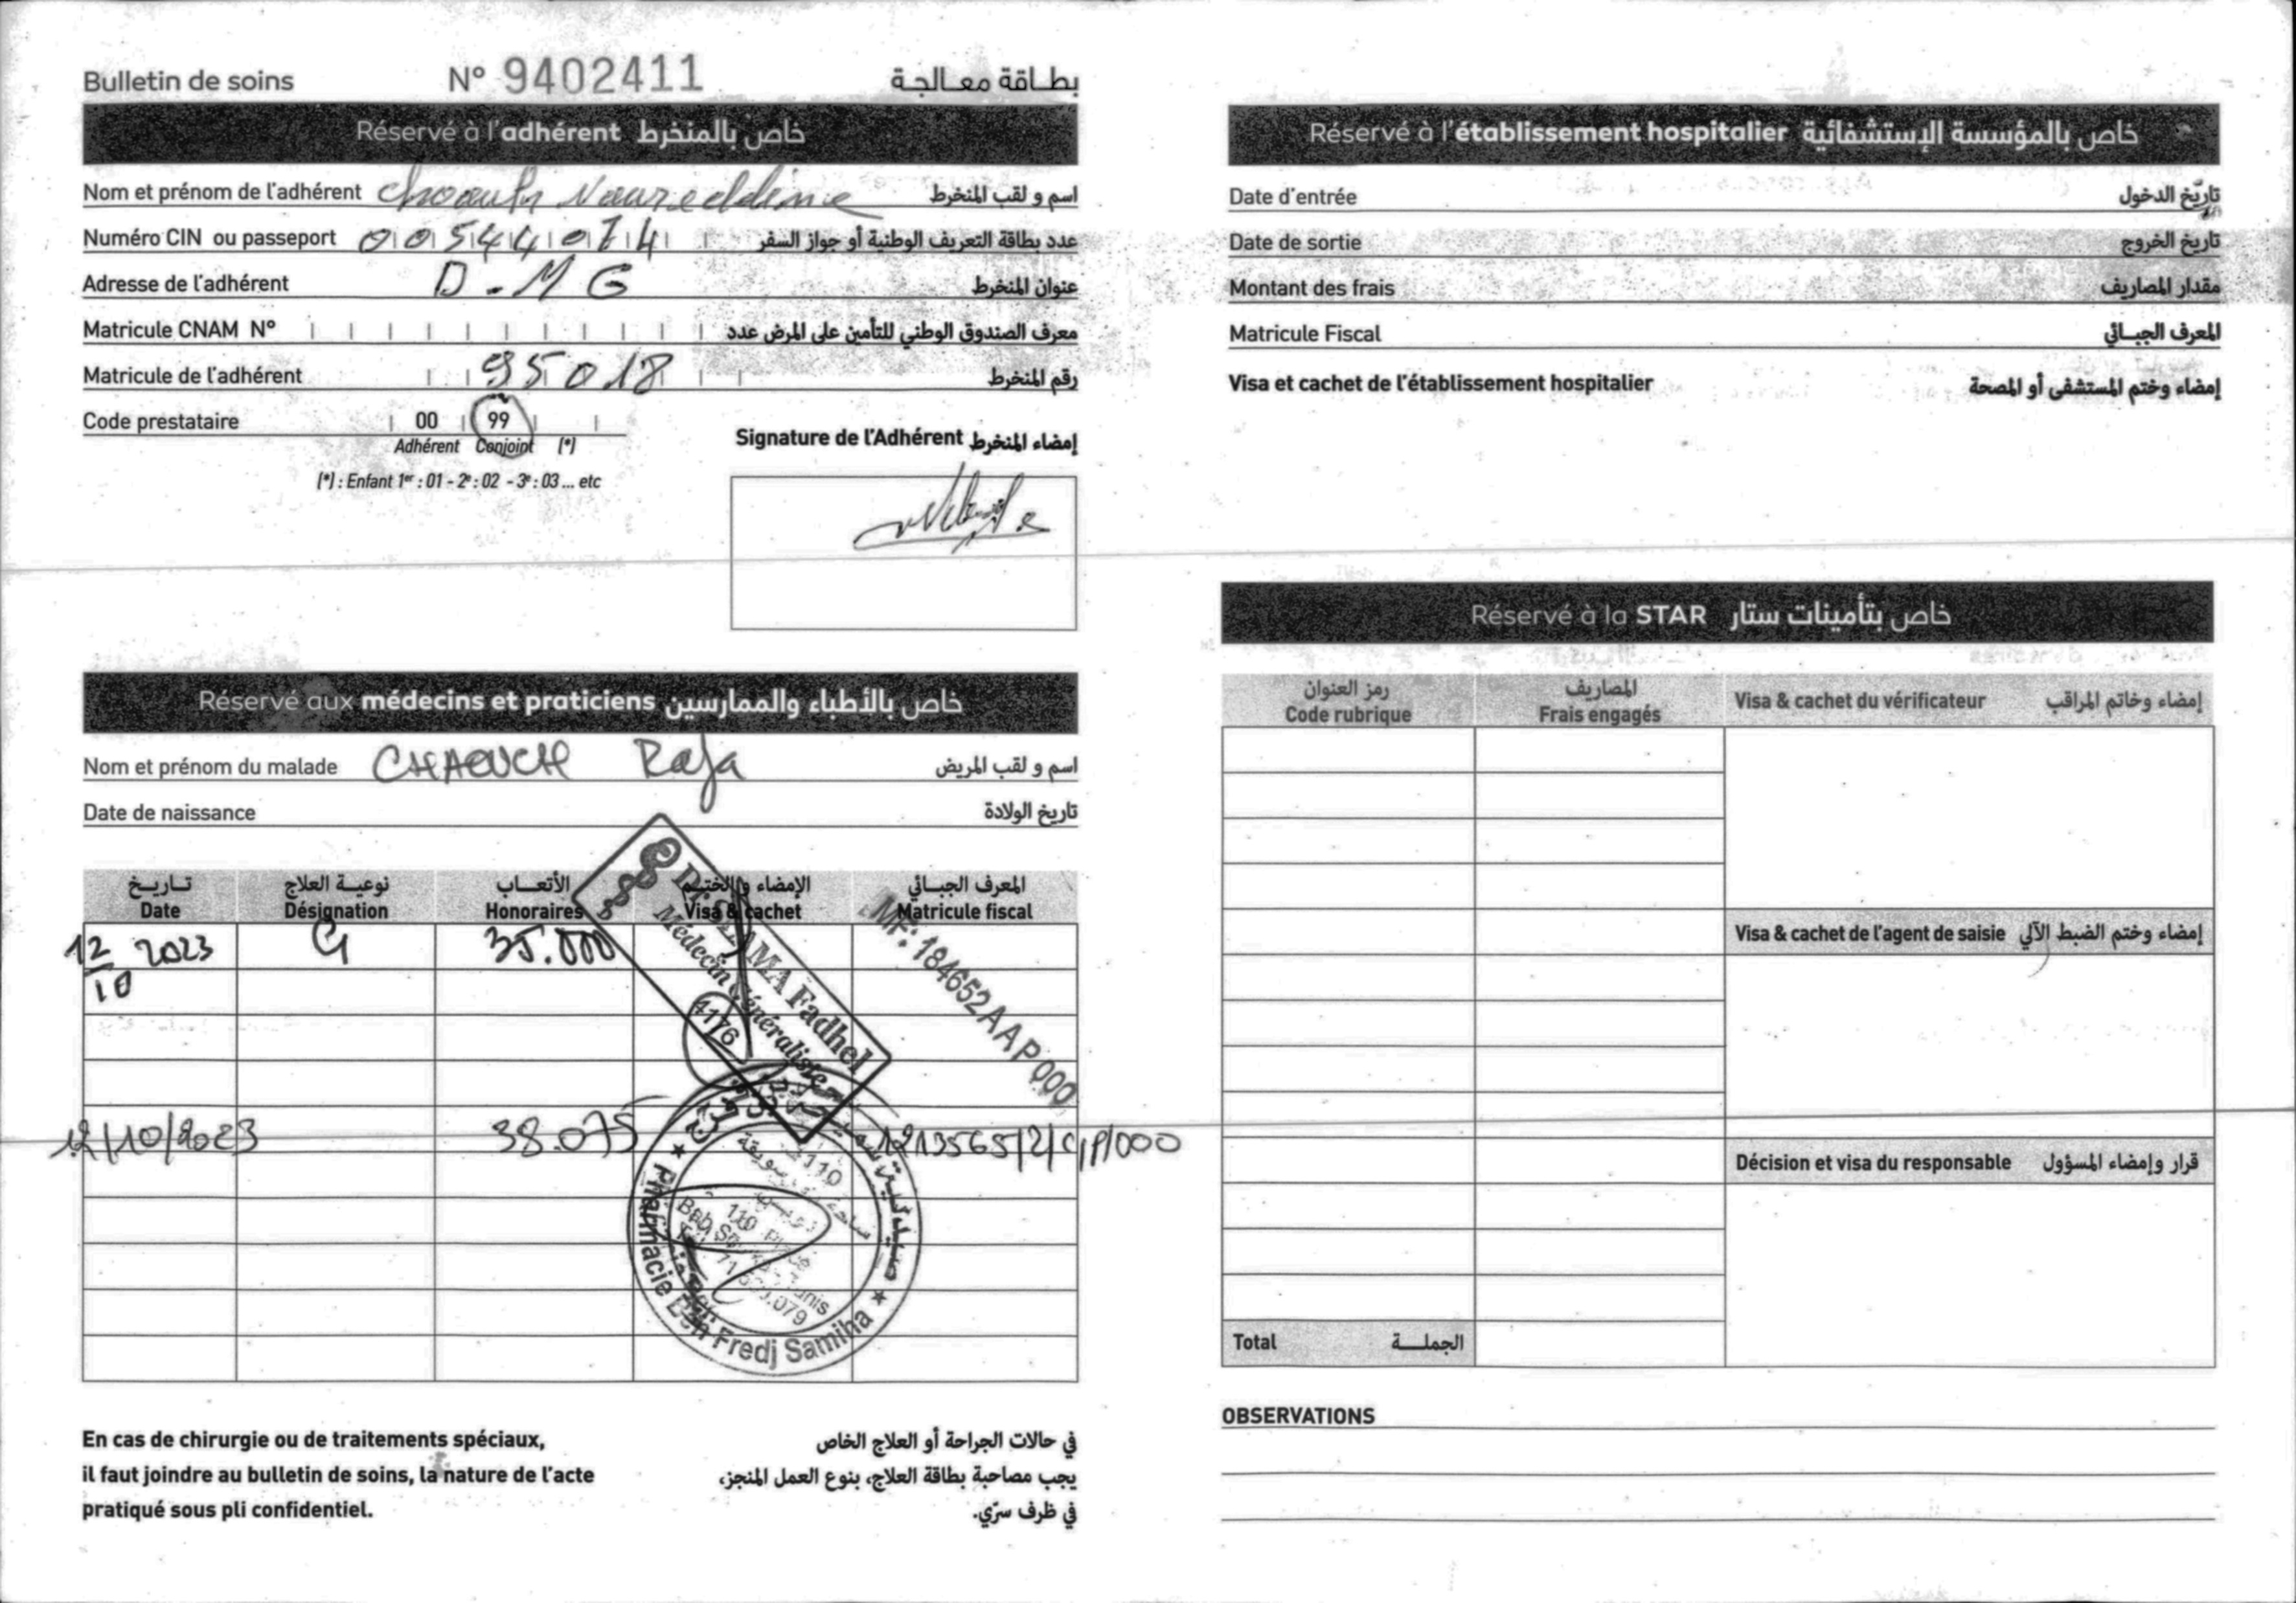 Bulletin de soins N° 9402411 بطاقة معالجة
Réservé à l'adhérent خاص بالمنخرط
Nom et prénom de l'adhérent Chaouch Noureddine اسم و لقب المنخرط
Numéro CIN ou passeport 00544074 عدد بطاقة التعريف الوطنية أو جواز السفر
Adresse de l'adhérent D.MG عنوان المنخرط
Matricule CNAM N° معرف الصندوق الوطني للتأمين على المرض عدد
Matricule de l'adhérent 95018 رقم المنخرط
Code prestataire 00 99
Adhérent Conjoint (*)
(*) : Enfant 1er : 01 - 2e : 02 - 3e : 03 ... etc
Signature de l'Adhérent إمضاء المنخرط
Réservé aux médecins et praticiens خاص بالأطباء والممارسين
Nom et prénom du malade CHAOUCH Raja اسم و لقب المريض
Date de naissance تاريخ الولادة
تاريخ نوعية العلاج الأتعاب الإمضاء والختم المعرف الجبائي
Date Désignation Honoraires Visa & cachet Matricule fiscal
12/10 2023 35.000
Fadhel
Médecin Généraliste
4176
MF: 184652AAP000
12/10/2023 38.075 1213565/2/C/P/000
110
110 Place
Pharmacie Ben Fredj Samiha
En cas de chirurgie ou de traitements spéciaux,
il faut joindre au bulletin de soins, la nature de l'acte
pratiqué sous pli confidentiel.
في حالات الجراحة أو العلاج الخاص
يجب مصاحبة بطاقة العلاج، بنوع العمل المنجز،
في ظرف سرّي.
Réservé à l'établissement hospitalier خاص بالمؤسسة الإستشفائية
Date d'entrée تاريخ الدخول
Date de sortie تاريخ الخروج
Montant des frais مقدار المصاريف
Matricule Fiscal المعرف الجبائي
Visa et cachet de l'établissement hospitalier إمضاء وختم المستشفى أو المصحة
Réservé à la STAR خاص بتأمينات ستار
رمز العنوان المصاريف
Code rubrique Frais engagés Visa & cachet du vérificateur إمضاء وخاتم المراقب
Visa & cachet de l'agent de saisie إمضاء وختم الضبط الآلي
Décision et visa du responsable قرار وإمضاء المسؤول
Total الجملة
OBSERVATIONS